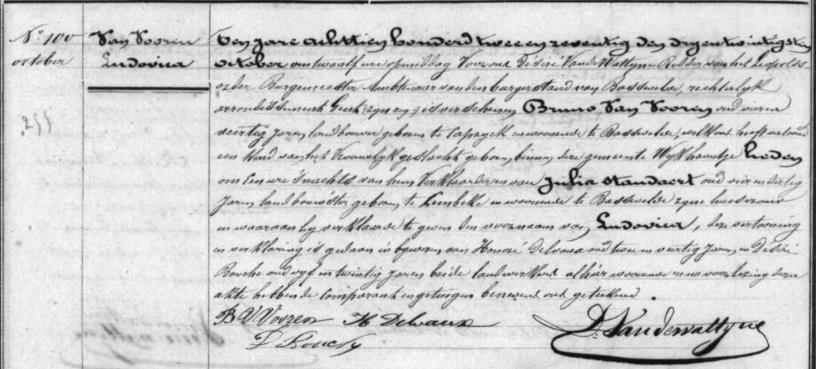 N.° 100
october
Van Vooren
Ludovica
Den jare achttien honderd twee en zeventig den dryentwintigsten
october om twaalf ure middag Voor ons Désiré Vande Wattyne Ridder van het Leopolds
order Burgemeester Ambtenaar van den burgerstand van Bassevelde, rechterlyk
arrondissement Gent is verschenen Bruno Van Vooren oud vier en
veertig jaren landbouwer geboren te Caprycke en woonende te Bassevelde, welke ons heeft vertoond
een kind van het Vrouwlyk geslacht geboren binnen deze gemeente Wyk heden
om een ure 's nachts van hem Verklaarder en van Julia Standaert oud vier en dertig
jaren landbouwster geboren te Lembeke en woonende te Bassevelde zyne huisvrouw
en waaraan hy verklaarde te geven den voornaam van Ludovica, deze vertooning
en verklaring is gedaan in bywezen van Honoré Delvaux oud twee en veertig jaren, en Désiré
oud vyf en twintig jaren beide landwerkers alhier woonende en na voorlezing dezer
akte hebben de comparant en getuigen benevens ons geteekend.
B V Vooren H Delvaux
D. Vandewattyne
D